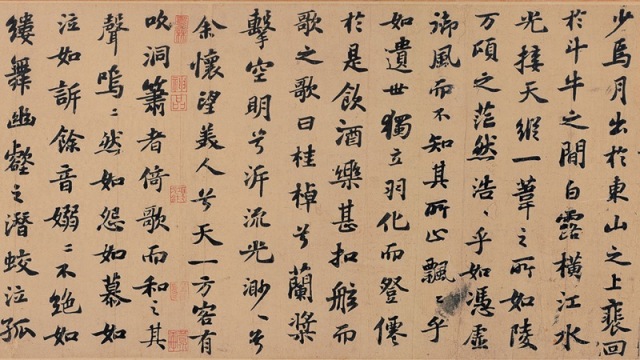 少焉月出於東山之上裵回
於斗牛之間白露橫江水
光接天縱一葦之所如陵
万頃之茫然浩〻乎如馮虛
御風而不知其所止飄〻乎
如遺世獨立羽化而登僊
於是飲酒樂甚扣舷而
歌之歌曰桂棹兮蘭槳
擊空明兮泝流光渺〻兮
余懷望美人兮天一方客有
吹洞簫者倚歌而和之其
聲嗚〻然如怨如慕如
泣如訴餘音嫋〻不絕如
縷舞幽壑之潛蛟泣孤